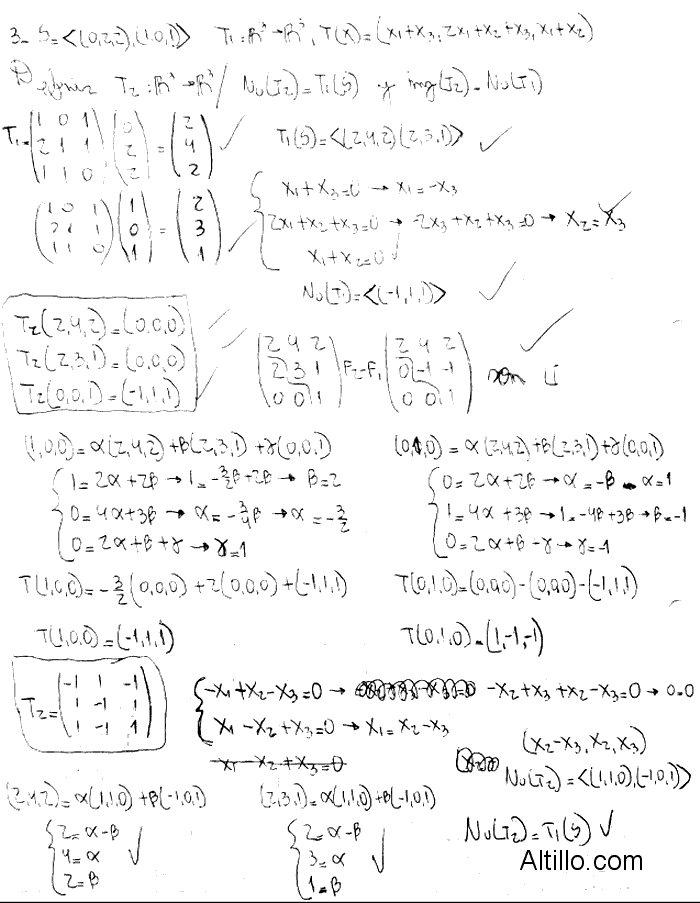 3- S=<(0,2,2),(1,0,1)> T₁:ℝ³→ℝ³, T(x)=(x₁+x₃, 2x₁+x₂+x₃, x₁+x₂)
Definir T₂:ℝ³→ℝ³/ Nu(T₂)=T₁(S) y img(T₂)=Nu(T₁)
T₁=(1 0 1 / 2 1 1 / 1 1 0)(0 / 2 / 2)=(2 / 4 / 2) ✓ T₁(S)=<(2,4,2)(2,3,1)> ✓
(1 0 1 / 2 1 1 / 1 1 0)(1 / 0 / 1)=(2 / 3 / 1) ✓
{ x₁+x₃=0 → x₁=-x₃
2x₁+x₂+x₃=0 → -2x₃+x₂+x₃=0 → x₂=x₃ ✓
x₁+x₂=0 ✓
Nu(T₁)=<(-1,1,1)> ✓
T₂(2,4,2)=(0,0,0)
T₂(2,3,1)=(0,0,0)
T₂(0,0,1)=(-1,1,1)
(2 4 2 / 2 3 1 / 0 0 1) F₂-F₁ (2 4 2 / 0 -1 -1 / 0 0 1) son LI ✓
(1,0,0)=α(2,4,2)+β(2,3,1)+γ(0,0,1)
{ 1=2α+2β → 1=-3/2β+2β → β=2
0=4α+3β → α=-3/4β → α=-3/2
0=2α+β+γ → γ=1
T(1,0,0)=-3/2(0,0,0)+2(0,0,0)+(-1,1,1)
T(1,0,0)=(-1,1,1)
(0,1,0)=α(2,4,2)+β(2,3,1)+γ(0,0,1)
{ 0=2α+2β → α=-β α=1
1=4α+3β → 1=-4β+3β → β=-1
0=2α+β+γ → γ=-1
T(0,1,0)=(0,0,0)-(0,0,0)-(-1,1,1)
T(0,1,0)=(1,-1,-1)
T₂=(-1 1 -1 / 1 -1 1 / 1 -1 1)
{ -x₁+x₂-x₃=0 → -x₂+x₃+x₂-x₃=0 → 0=0
x₁-x₂+x₃=0 → x₁=x₂-x₃
x₁-x₂+x₃=0
(x₂-x₃,x₂,x₃)
Nu(T₂)=<(1,1,0),(-1,0,1)>
(2,4,2)=α(1,1,0)+β(-1,0,1)
{ 2=α-β
4=α ✓
2=β
(2,3,1)=α(1,1,0)+β(-1,0,1)
{ 2=α-β
3=α ✓
1=β
Nu(T₂)=T₁(S) ✓
Altillo.com